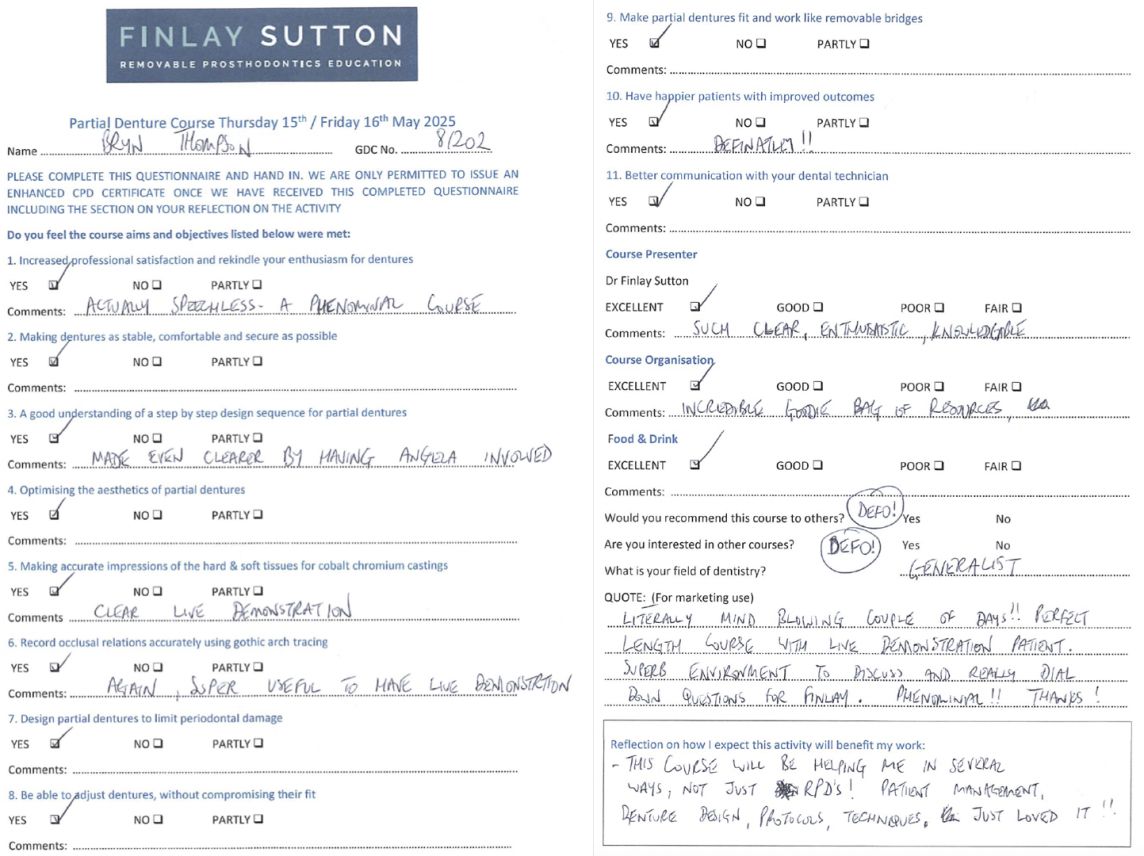 FINLAY SUTTON
REMOVABLE PROSTHODONTICS EDUCATION
Partial Denture Course Thursday 15th / Friday 16th May 2025
Name BRYN THOMPSON GDC No. 81202
PLEASE COMPLETE THIS QUESTIONNAIRE AND HAND IN. WE ARE ONLY PERMITTED TO ISSUE AN
ENHANCED CPD CERTIFICATE ONCE WE HAVE RECEIVED THIS COMPLETED QUESTIONNAIRE
INCLUDING THE SECTION ON YOUR REFLECTION ON THE ACTIVITY
Do you feel the course aims and objectives listed below were met:
1. Increased professional satisfaction and rekindle your enthusiasm for dentures
YES ☑ NO ☐ PARTLY ☐
Comments: ACTUALLY SPEECHLESS- A PHENOMINAL COURSE
2. Making dentures as stable, comfortable and secure as possible
YES ☑ NO ☐ PARTLY ☐
Comments:
3. A good understanding of a step by step design sequence for partial dentures
YES ☑ NO ☐ PARTLY ☐
Comments: MADE EVEN CLEARER BY HAVING ANGELA INVOLVED
4. Optimising the aesthetics of partial dentures
YES ☑ NO ☐ PARTLY ☐
Comments:
5. Making accurate impressions of the hard & soft tissues for cobalt chromium castings
YES ☑ NO ☐ PARTLY ☐
Comments CLEAR LIVE DEMONSTRATION
6. Record occlusal relations accurately using gothic arch tracing
YES ☑ NO ☐ PARTLY ☐
Comments: AGAIN, SUPER USEFUL TO HAVE LIVE DEMONSTRTION
7. Design partial dentures to limit periodontal damage
YES ☑ NO ☐ PARTLY ☐
Comments:
8. Be able to adjust dentures, without compromising their fit
YES ☑ NO ☐ PARTLY ☐
Comments:
9. Make partial dentures fit and work like removable bridges
YES ☑ NO ☐ PARTLY ☐
Comments:
10. Have happier patients with improved outcomes
YES ☑ NO ☐ PARTLY ☐
Comments: DEFINATLEY!!
11. Better communication with your dental technician
YES ☑ NO ☐ PARTLY ☐
Comments:
Course Presenter
Dr Finlay Sutton
EXCELLENT ☑ GOOD ☐ POOR ☐ FAIR ☐
Comments: SUCH CLEAR, ENTHUSIASTIC, KNOWLEDGABLE
Course Organisation
EXCELLENT ☑ GOOD ☐ POOR ☐ FAIR ☐
Comments: INCREDIBLE GOODIE BAG OF RESOURCES,
Food & Drink
EXCELLENT ☑ GOOD ☐ POOR ☐ FAIR ☐
Comments:
Would you recommend this course to others? DEFO! Yes No
Are you interested in other courses? DEFO! Yes No
What is your field of dentistry? GENERALIST
QUOTE: (For marketing use)
LITERALLY MIND BLOWING COUPLE OF DAYS!! PERFECT
LENGTH COURSE WITH LIVE DEMONSTRATION PATIENT.
SUPERB ENVIRONMENT TO DISCUSS AND REALLY DIAL
DOWN QUESTIONS FOR FINLAY. PHENOMINAL!! THANKS!
Reflection on how I expect this activity will benefit my work:
- THIS COURSE WILL BE HELPING ME IN SEVERAL
WAYS, NOT JUST RPD'S! PATIENT MANAGEMENT,
DENTURE DESIGN, PROTOCOLS, TECHNIQUES, JUST LOVED IT!!